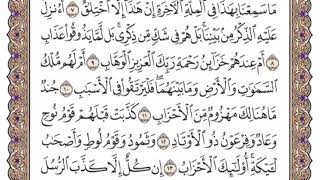 مَا سَمِعْنَا بِهَٰذَا فِي الْمِلَّةِ الْآخِرَةِ إِنْ هَٰذَا إِلَّا اخْتِلَاقٌ ٧ أَءُنزِلَ
عَلَيْهِ الذِّكْرُ مِن بَيْنِنَا بَلْ هُمْ فِي شَكٍّ مِّن ذِكْرِي بَل لَّمَّا يَذُوقُوا عَذَابِ
٨ أَمْ عِندَهُمْ خَزَائِنُ رَحْمَةِ رَبِّكَ الْعَزِيزِ الْوَهَّابِ ٩ أَمْ لَهُم مُّلْكُ
السَّمَٰوَٰتِ وَالْأَرْضِ وَمَا بَيْنَهُمَا فَلْيَرْتَقُوا فِي الْأَسْبَٰبِ ١٠ جُندٌ
مَّا هُنَالِكَ مَهْزُومٌ مِّنَ الْأَحْزَابِ ١١ كَذَّبَتْ قَبْلَهُمْ قَوْمُ نُوحٍ
وَعَادٌ وَفِرْعَوْنُ ذُو الْأَوْتَادِ ١٢ وَثَمُودُ وَقَوْمُ لُوطٍ وَأَصْحَٰبُ
لْـَٔيْكَةِ أُولَٰئِكَ الْأَحْزَابُ ١٣ إِن كُلٌّ إِلَّا كَذَّبَ الرُّسُلَ